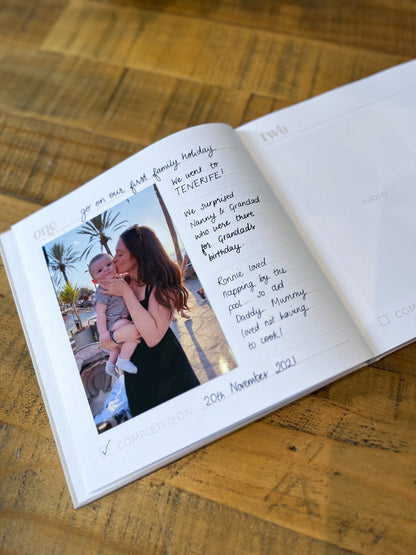 one
go on our first family holiday
We went to
TENERIFE!
We surprised
Nanny & Grandad
who were there
for Grandads
birthday.
Ronnie loved
napping by the
pool... so did
Daddy. Mummy
loved not having
to cook!
COMPLETED ON
20th November 2021
two
PHOTO
COM